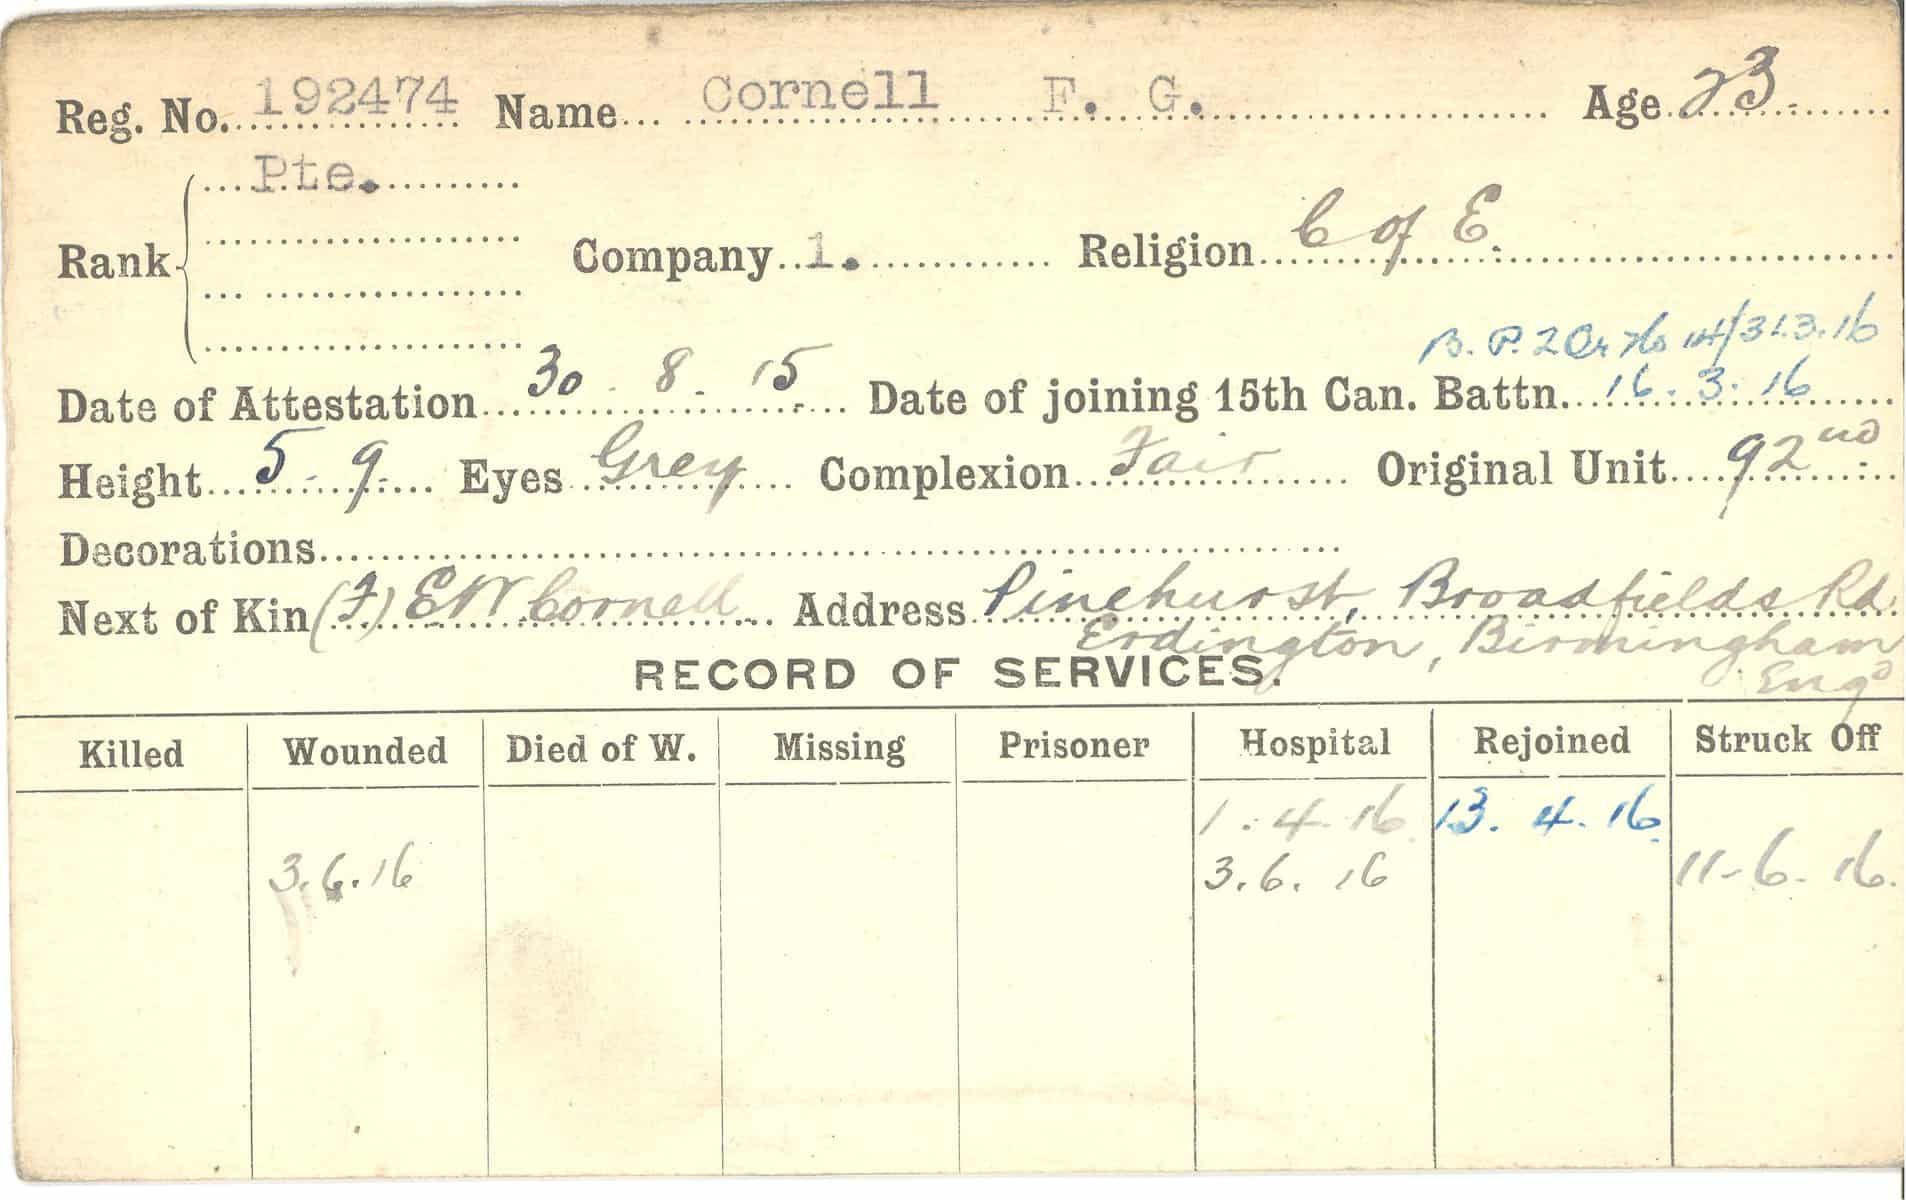 Reg. No. 192474 Name Cornell F. G. Age 23
Pte.
Rank Company 1. Religion C of E.
B. P. 2 14/31.3.16
Date of Attestation 30 . 8 . 15 Date of joining 15th Can. Battn. 16.3.16
Height 5-9 Eyes Grey Complexion Fair Original Unit 92nd
Decorations
Next of Kin (F) EW Cornell Address Pinehurst, Broadfields Rd
Erdington, Birmingham
Engd
RECORD OF SERVICES.
Killed Wounded Died of W. Missing Prisoner Hospital Rejoined Struck Off
1.4.16 13.4.16
3.6.16 3.6.16 11-6-16.